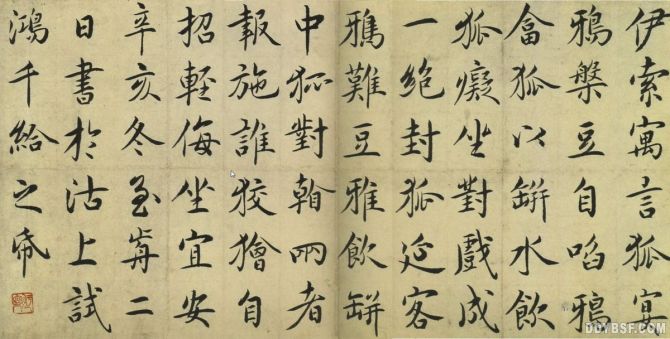 伊索寓言狐宴
鴉槃豆自啗鴉
畣狐以缾水飲
狐癡坐對戲成
一絕封狐延客
鴉難豆雅飲缾
中狐對翰兩者
報施誰狡獪自
招輕侮坐宜安
辛亥冬至歬二
日書於沽上試
鴻千給之帋
DDYBSF.COM